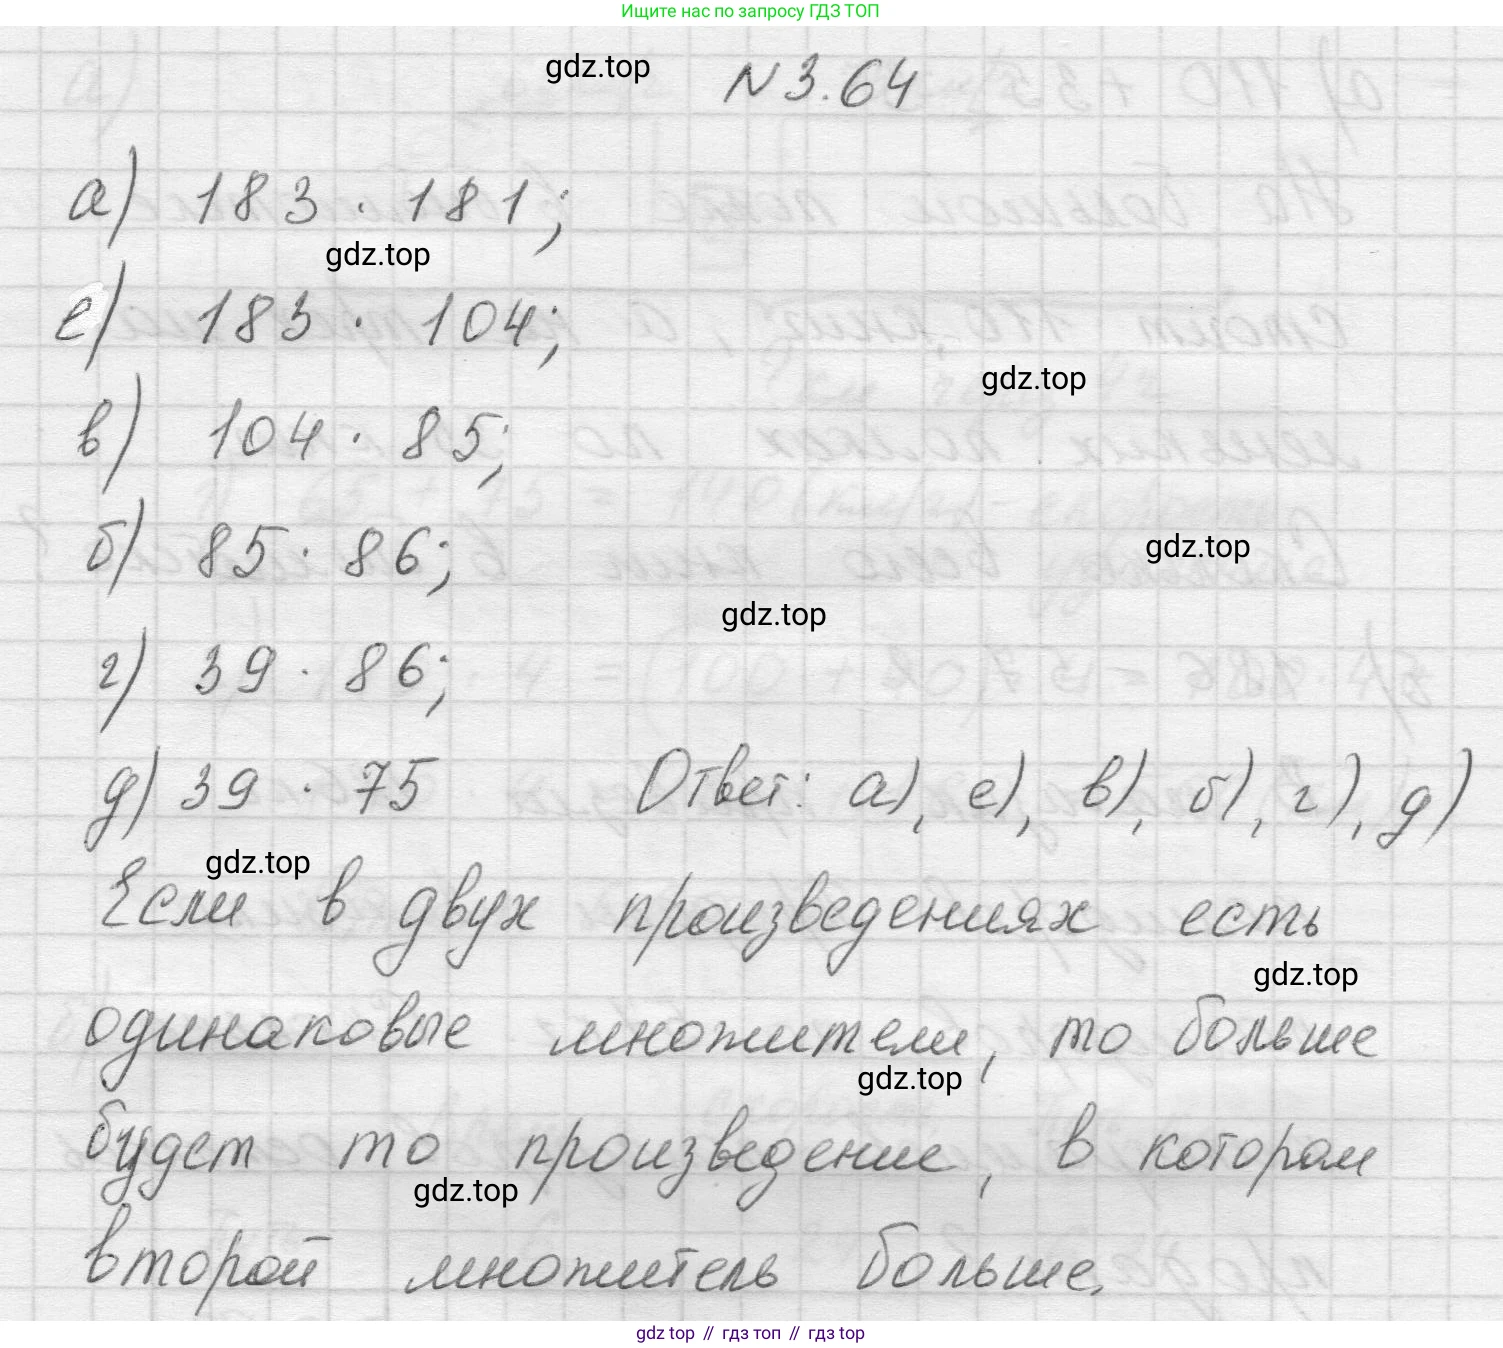 Ищите нас по запросу ГДЗ ТОП
gdz.top
N 3.64
а) 183 · 181;
gdz.top
е) 183 · 104;
gdz.top
в) 104 · 85;
б) 85 · 86;
gdz.top
gdz.top
г) 39 · 86;
д) 39 · 75 Ответ: а), е), в), б), г), д)
gdz.top
Если в двух произведениях есть
gdz.top
одинаковые множители, то больше
gdz.top
будет то произведение, в котором
gdz.top
второй множитель больше.
gdz top // гдз топ // гдз top